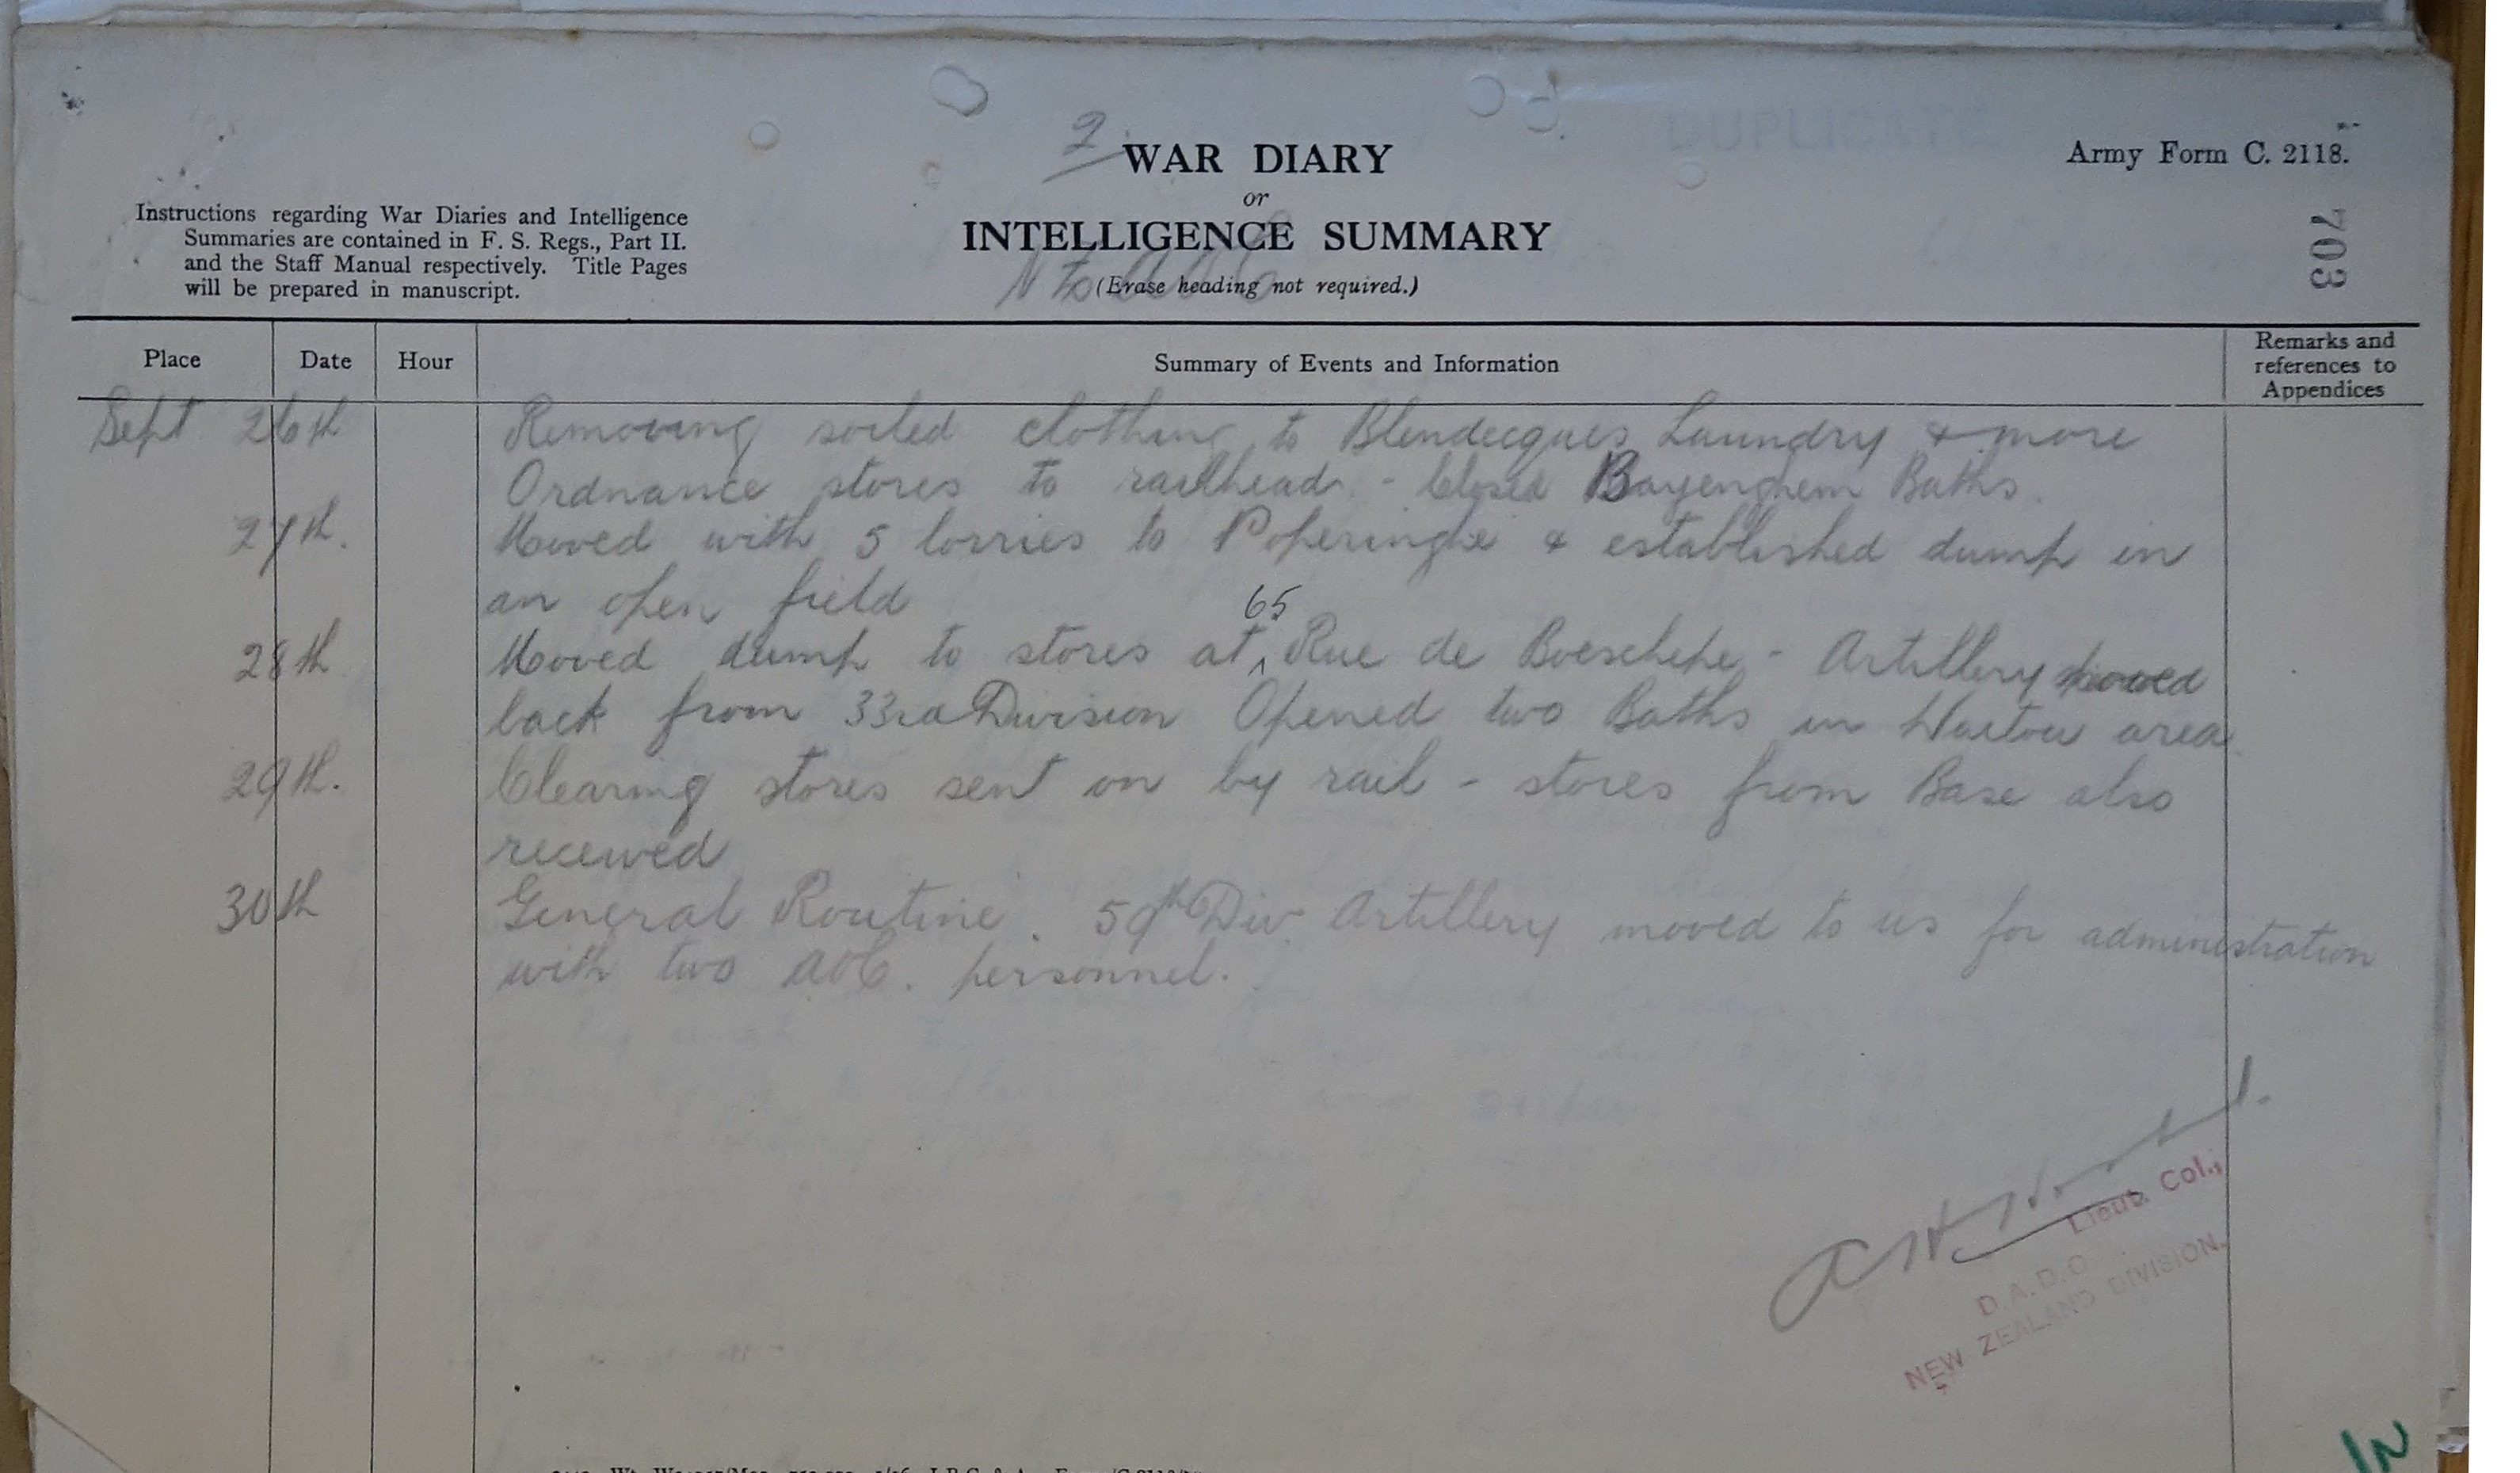 DUPLICATE
2
WAR DIARY
or
INTELLIGENCE SUMMARY
(Erase heading not required.)
Army Form C. 2118.
703
Instructions regarding War Diaries and Intelligence
Summaries are contained in F. S. Regs., Part II.
and the Staff Manual respectively. Title Pages
will be prepared in manuscript.
Place Date Hour Summary of Events and Information Remarks and
references to
Appendices
Sept 26th Removing soiled clothing to Blendecques Laundry & more
Ordnance stores to railhead - Closed Bayenghem Baths.
27th. Moved with 5 lorries to Poperinghe & established dump in
an open field
28th Moved dump to stores at 65 Rue de Boeschepe - Artillery moved
back from 33rd Division Opened two Baths in Watou area.
29th. Clearing stores sent on by rail - stores from Base also
received
30th General Routine. 59th Div. Artillery moved to us for administration
with two AOC. personnel.
Lieut. Col.,
D.A.D.O.
NEW ZEALAND DIVISION.